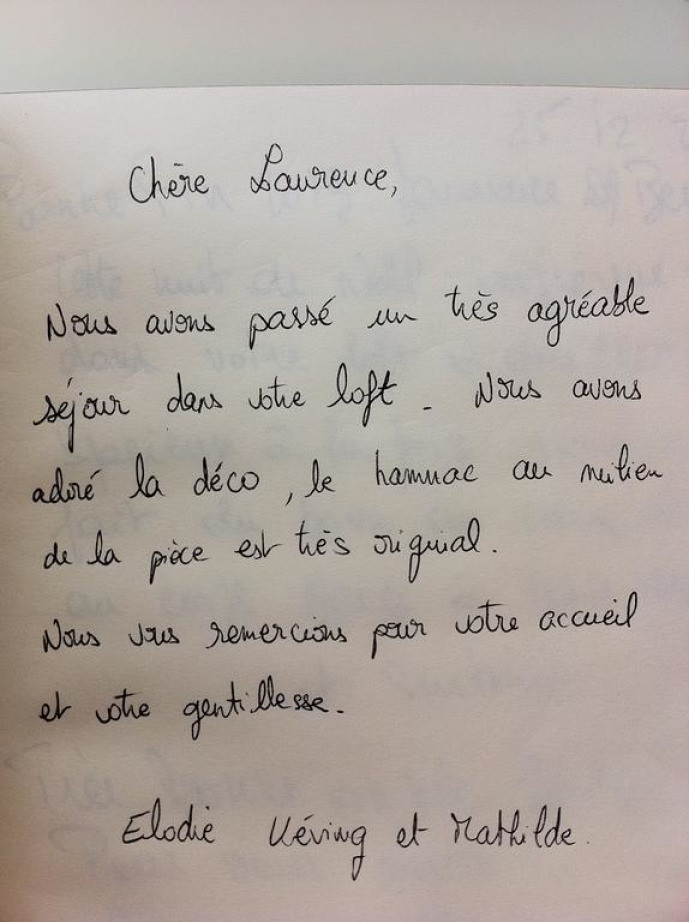 Chère Laurence,
Nous avons passé un très agréable
séjour dans votre loft. Nous avons
adoré la déco, le hamac au milieu
de la pièce est très original.
Nous vous remercions pour votre accueil
et votre gentillesse.
Elodie Kéving et Mathilde.